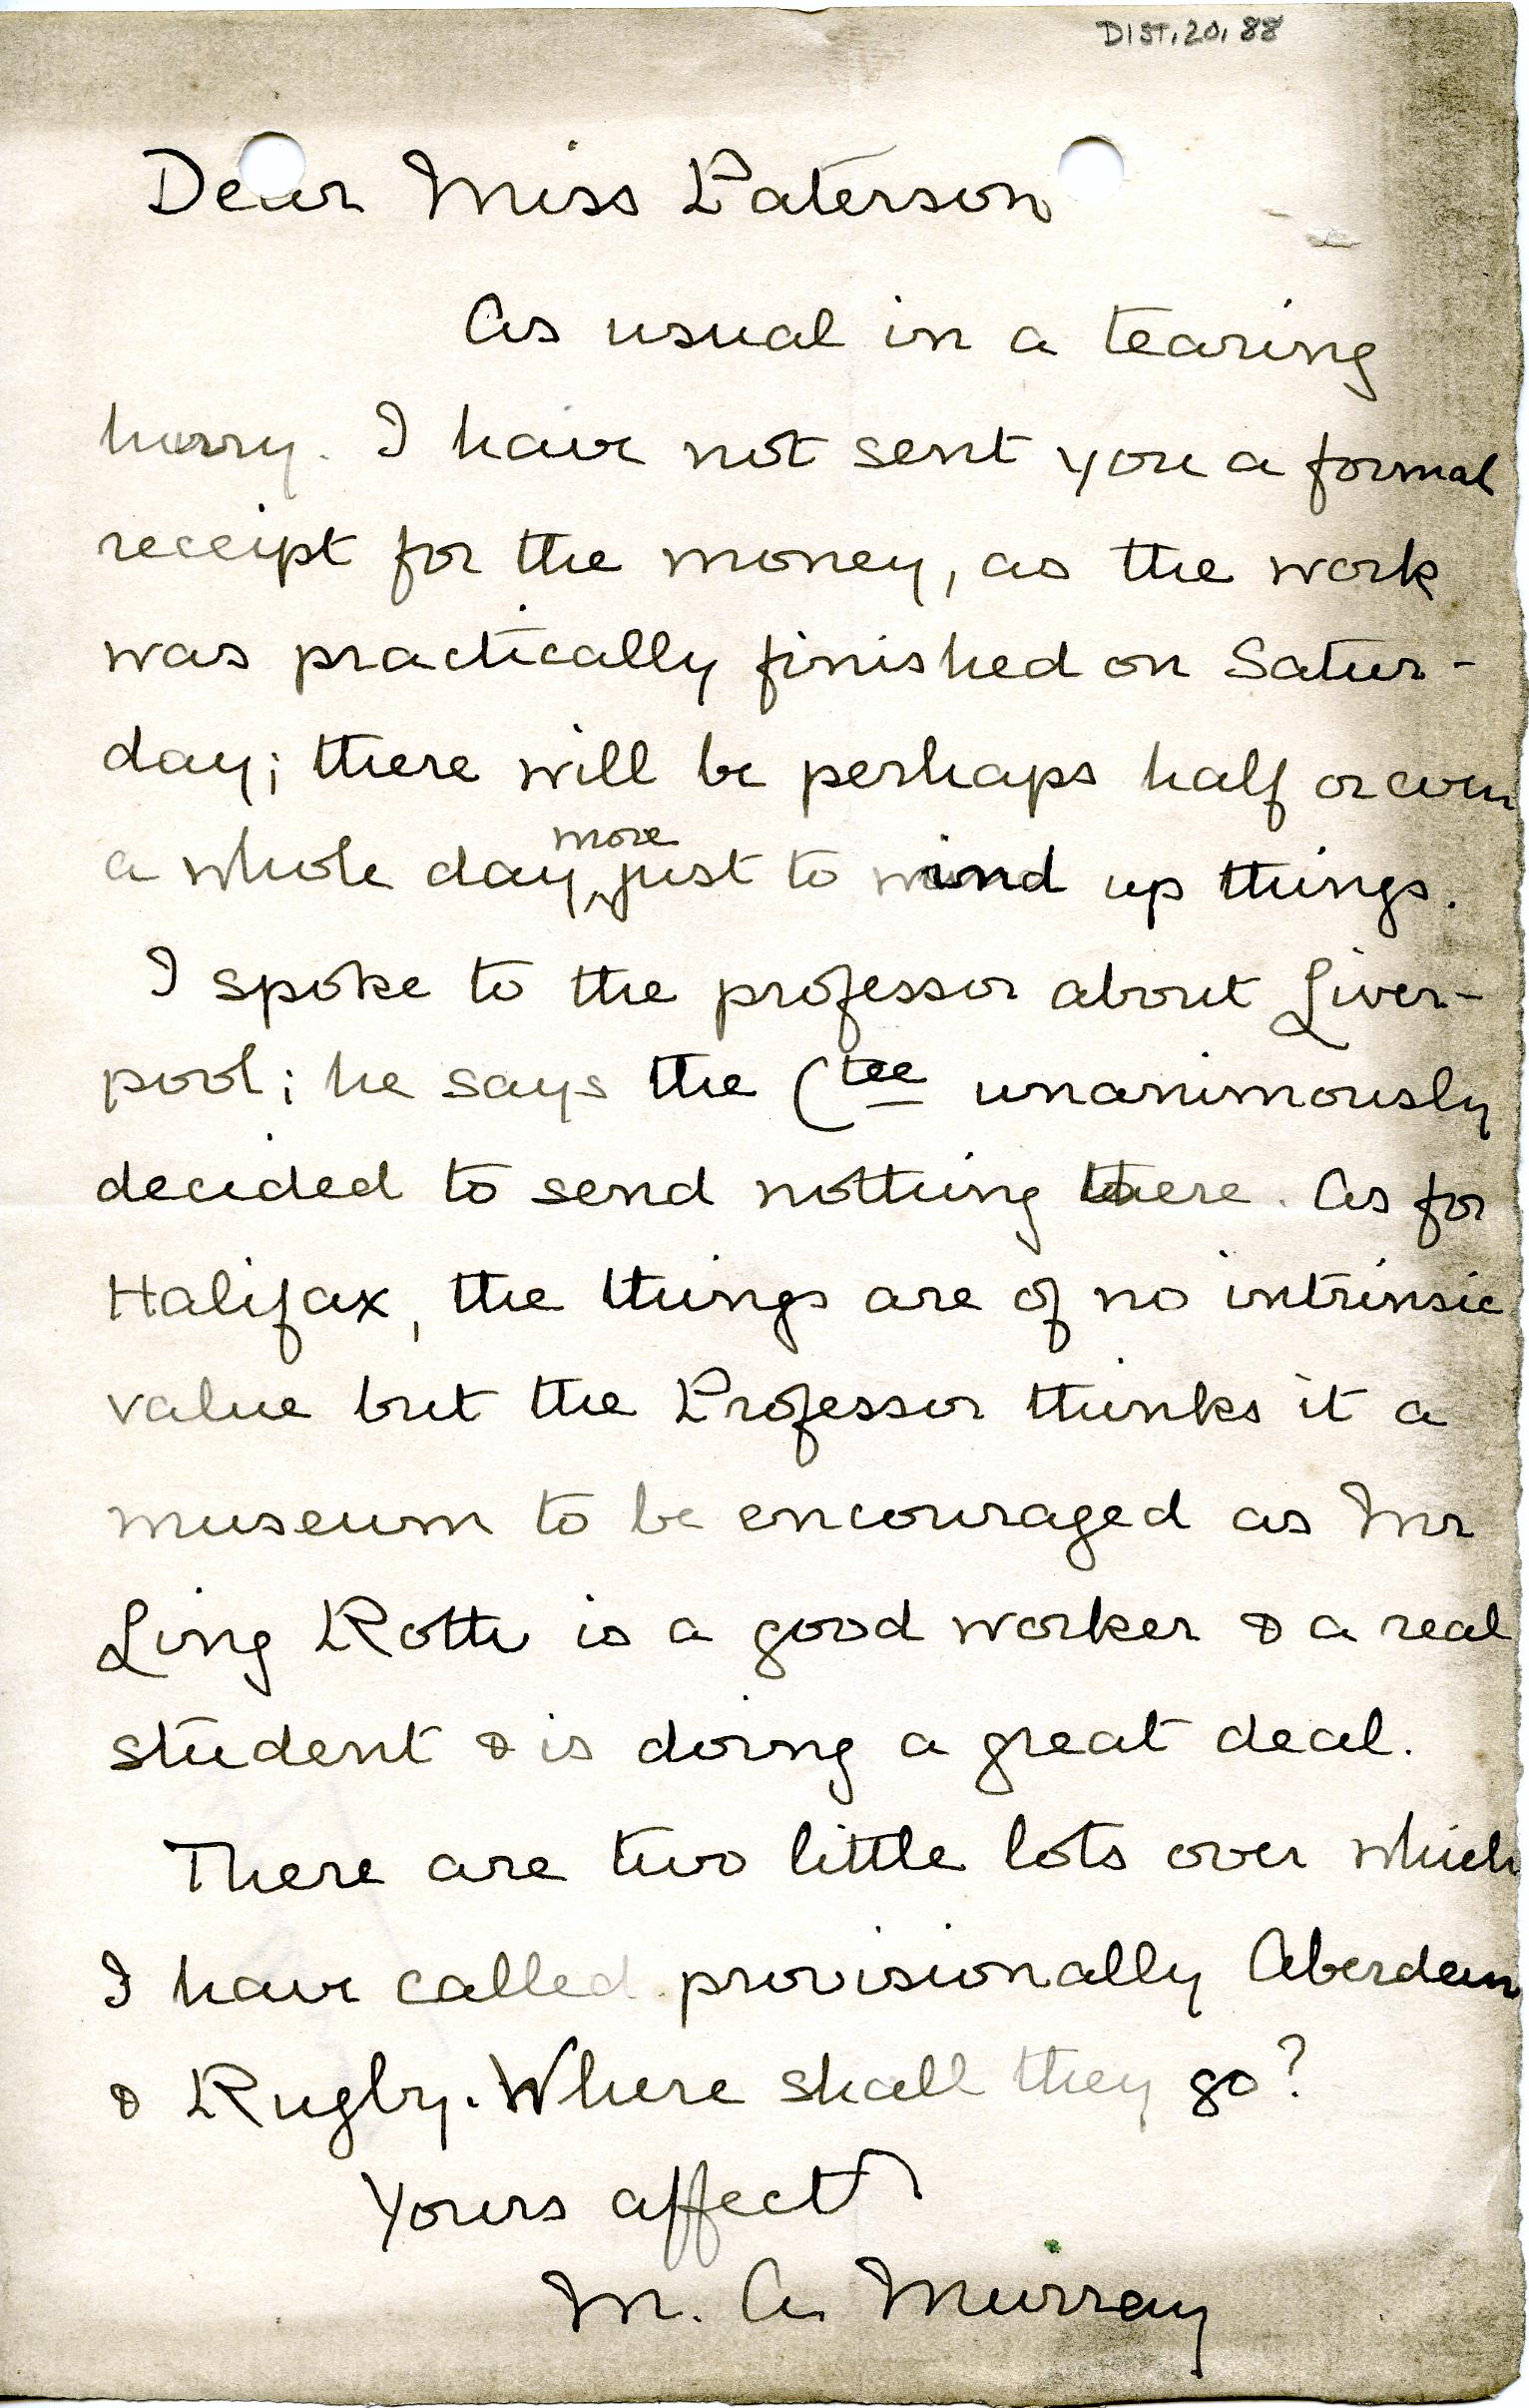 DIST.20.88
Dear Miss Paterson
As usual in a tearing
hurry. I have not sent you a formal
receipt for the money, as the work
was practically finished on Satur-
day; there will be perhaps half or even
more
a whole day, just to wind up things.
I spoke to the professor about Liver-
pool; he says the Ctee unanimously
decided to send nothing there. As for
Halifax, the things are of no intrinsic
value but the Professor thinks it a
museum to be encouraged as Mr
Ling Roth is a good worker & a real
student & is doing a great deal.
There are two little lots over which
I have called provisionally Aberdeen
& Rugby. Where shall they go?
Yours affectly
M. A. Murray